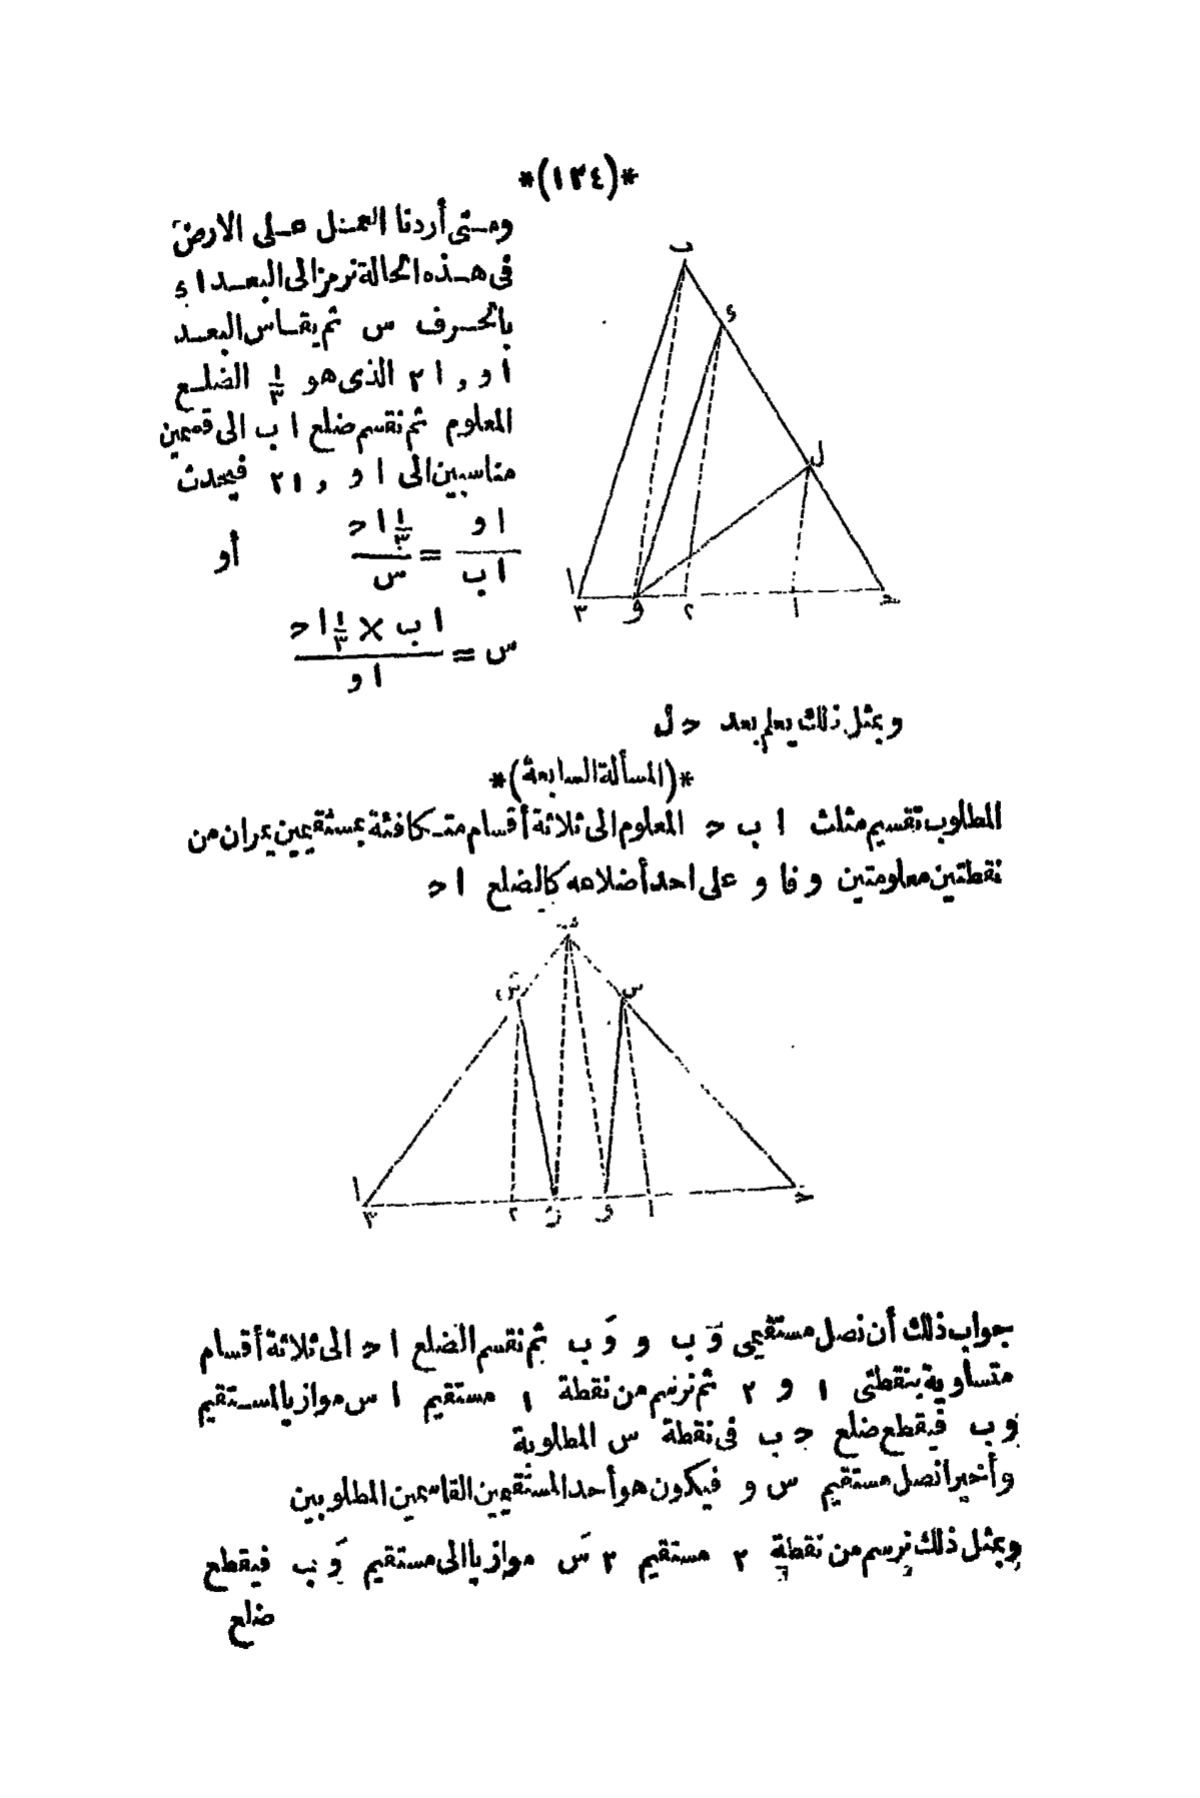 *(١٣٤)*
ومتى أردنا العمل على الارض
فى هذه الحالة نرمز الى البعد ا ء
بالحرف س ثم يقاس البعد
ا و , ا ٢ الذى هو ١/٣ الضلع
المعلوم ثم نقسم ضلع ا ب الى قسمين
مناسبين الى ا و , ا ٢ فيحدث
ا و / ا ب = ١/٣ ا ح / س أو
س = ا ب × ١/٣ ا ح / ا و
ب
ء
ل
ا
٣ و ٢ ١ ح
وبمثل ذلك يعلم بعد ح ل
*(المسألة السابعة)*
المطلوب تقسيم مثلث ا ب ح المعلوم الى ثلاثة أقسام متكافئة بمستقيمين يمران من
نقطتين معلومتين و فا و على احد أضلاعه كالضلع ا ح
ب
سَ س
ا
٣ ٢ وَ و ١ ح
جواب ذلك أن نصل مستقيمى وَ ب و وَ ب ثم نقسم الضلع ا ح الى ثلاثة أقسام
متساوية بنقطتى ١ و ٢ ثم نرسم من نقطة ١ مستقيم ١ س موازيا للمستقيم
و ب فيقطع ضلع ح ب فى نقطة س المطلوبة
وأخيرا نصل مستقيم س و فيكون هو أحد المستقيمين القاسمين المطلوبين
وبمثل ذلك نرسم من نقطة ٢ مستقيم ٢ سَ موازيا الى مستقيم وَ ب فيقطع
ضلع